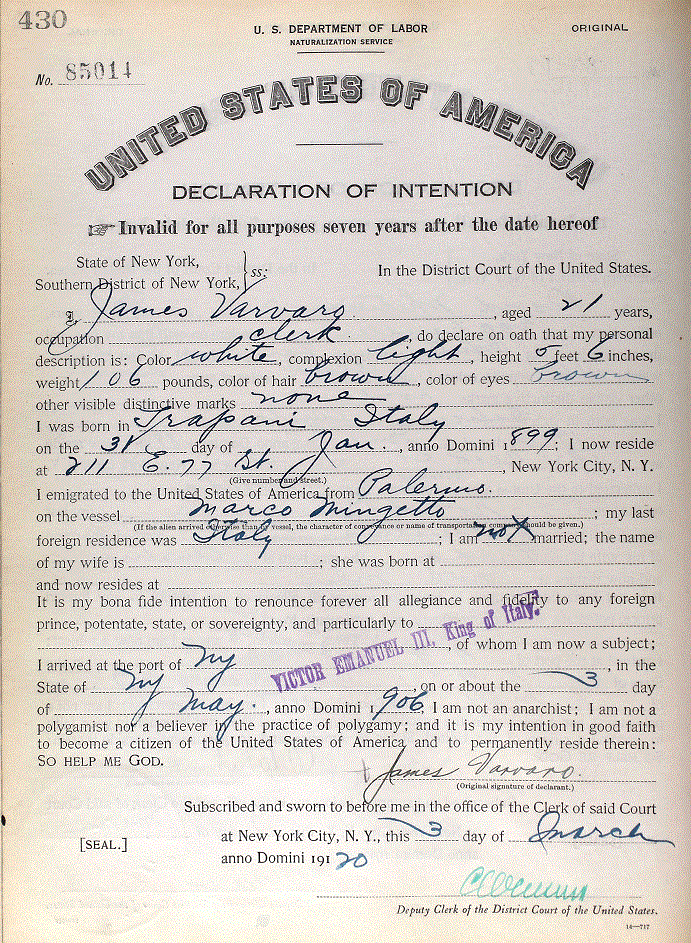 430
U. S. DEPARTMENT OF LABOR
NATURALIZATION SERVICE
ORIGINAL
No. 85014
UNITED STATES OF AMERICA
DECLARATION OF INTENTION
Invalid for all purposes seven years after the date hereof
State of New York,
Southern District of New York,
ss:
In the District Court of the United States.
I, James Varvaro, aged 21 years,
occupation clerk, do declare on oath that my personal
description is: Color white, complexion light, height 5 feet 6 inches,
weight 106 pounds, color of hair brown, color of eyes brown
other visible distinctive marks none
I was born in Trapani Italy
on the 31 day of Jan., anno Domini 1899; I now reside
at 211 E. 77 St., New York City, N. Y.
(Give number and street.)
I emigrated to the United States of America from Palermo.
on the vessel Marco Mingetto; my last
(If the alien arrived otherwise than by vessel, the character of conveyance or name of transportation company should be given.)
foreign residence was Italy; I am not married; the name
of my wife is ; she was born at
and now resides at
It is my bona fide intention to renounce forever all allegiance and fidelity to any foreign
prince, potentate, state, or sovereignty, and particularly to
VICTOR EMANUEL III, King of Italy.
, of whom I am now a subject;
I arrived at the port of NY, in the
State of NY, on or about the 3 day
of May., anno Domini 1906. I am not an anarchist; I am not a
polygamist nor a believer in the practice of polygamy; and it is my intention in good faith
to become a citizen of the United States of America and to permanently reside therein:
SO HELP ME GOD.
James Varvaro.
(Original signature of declarant.)
Subscribed and sworn to before me in the office of the Clerk of said Court
[SEAL.]
at New York City, N. Y., this 3 day of March
anno Domini 19120
Deputy Clerk of the District Court of the United States.
14—717